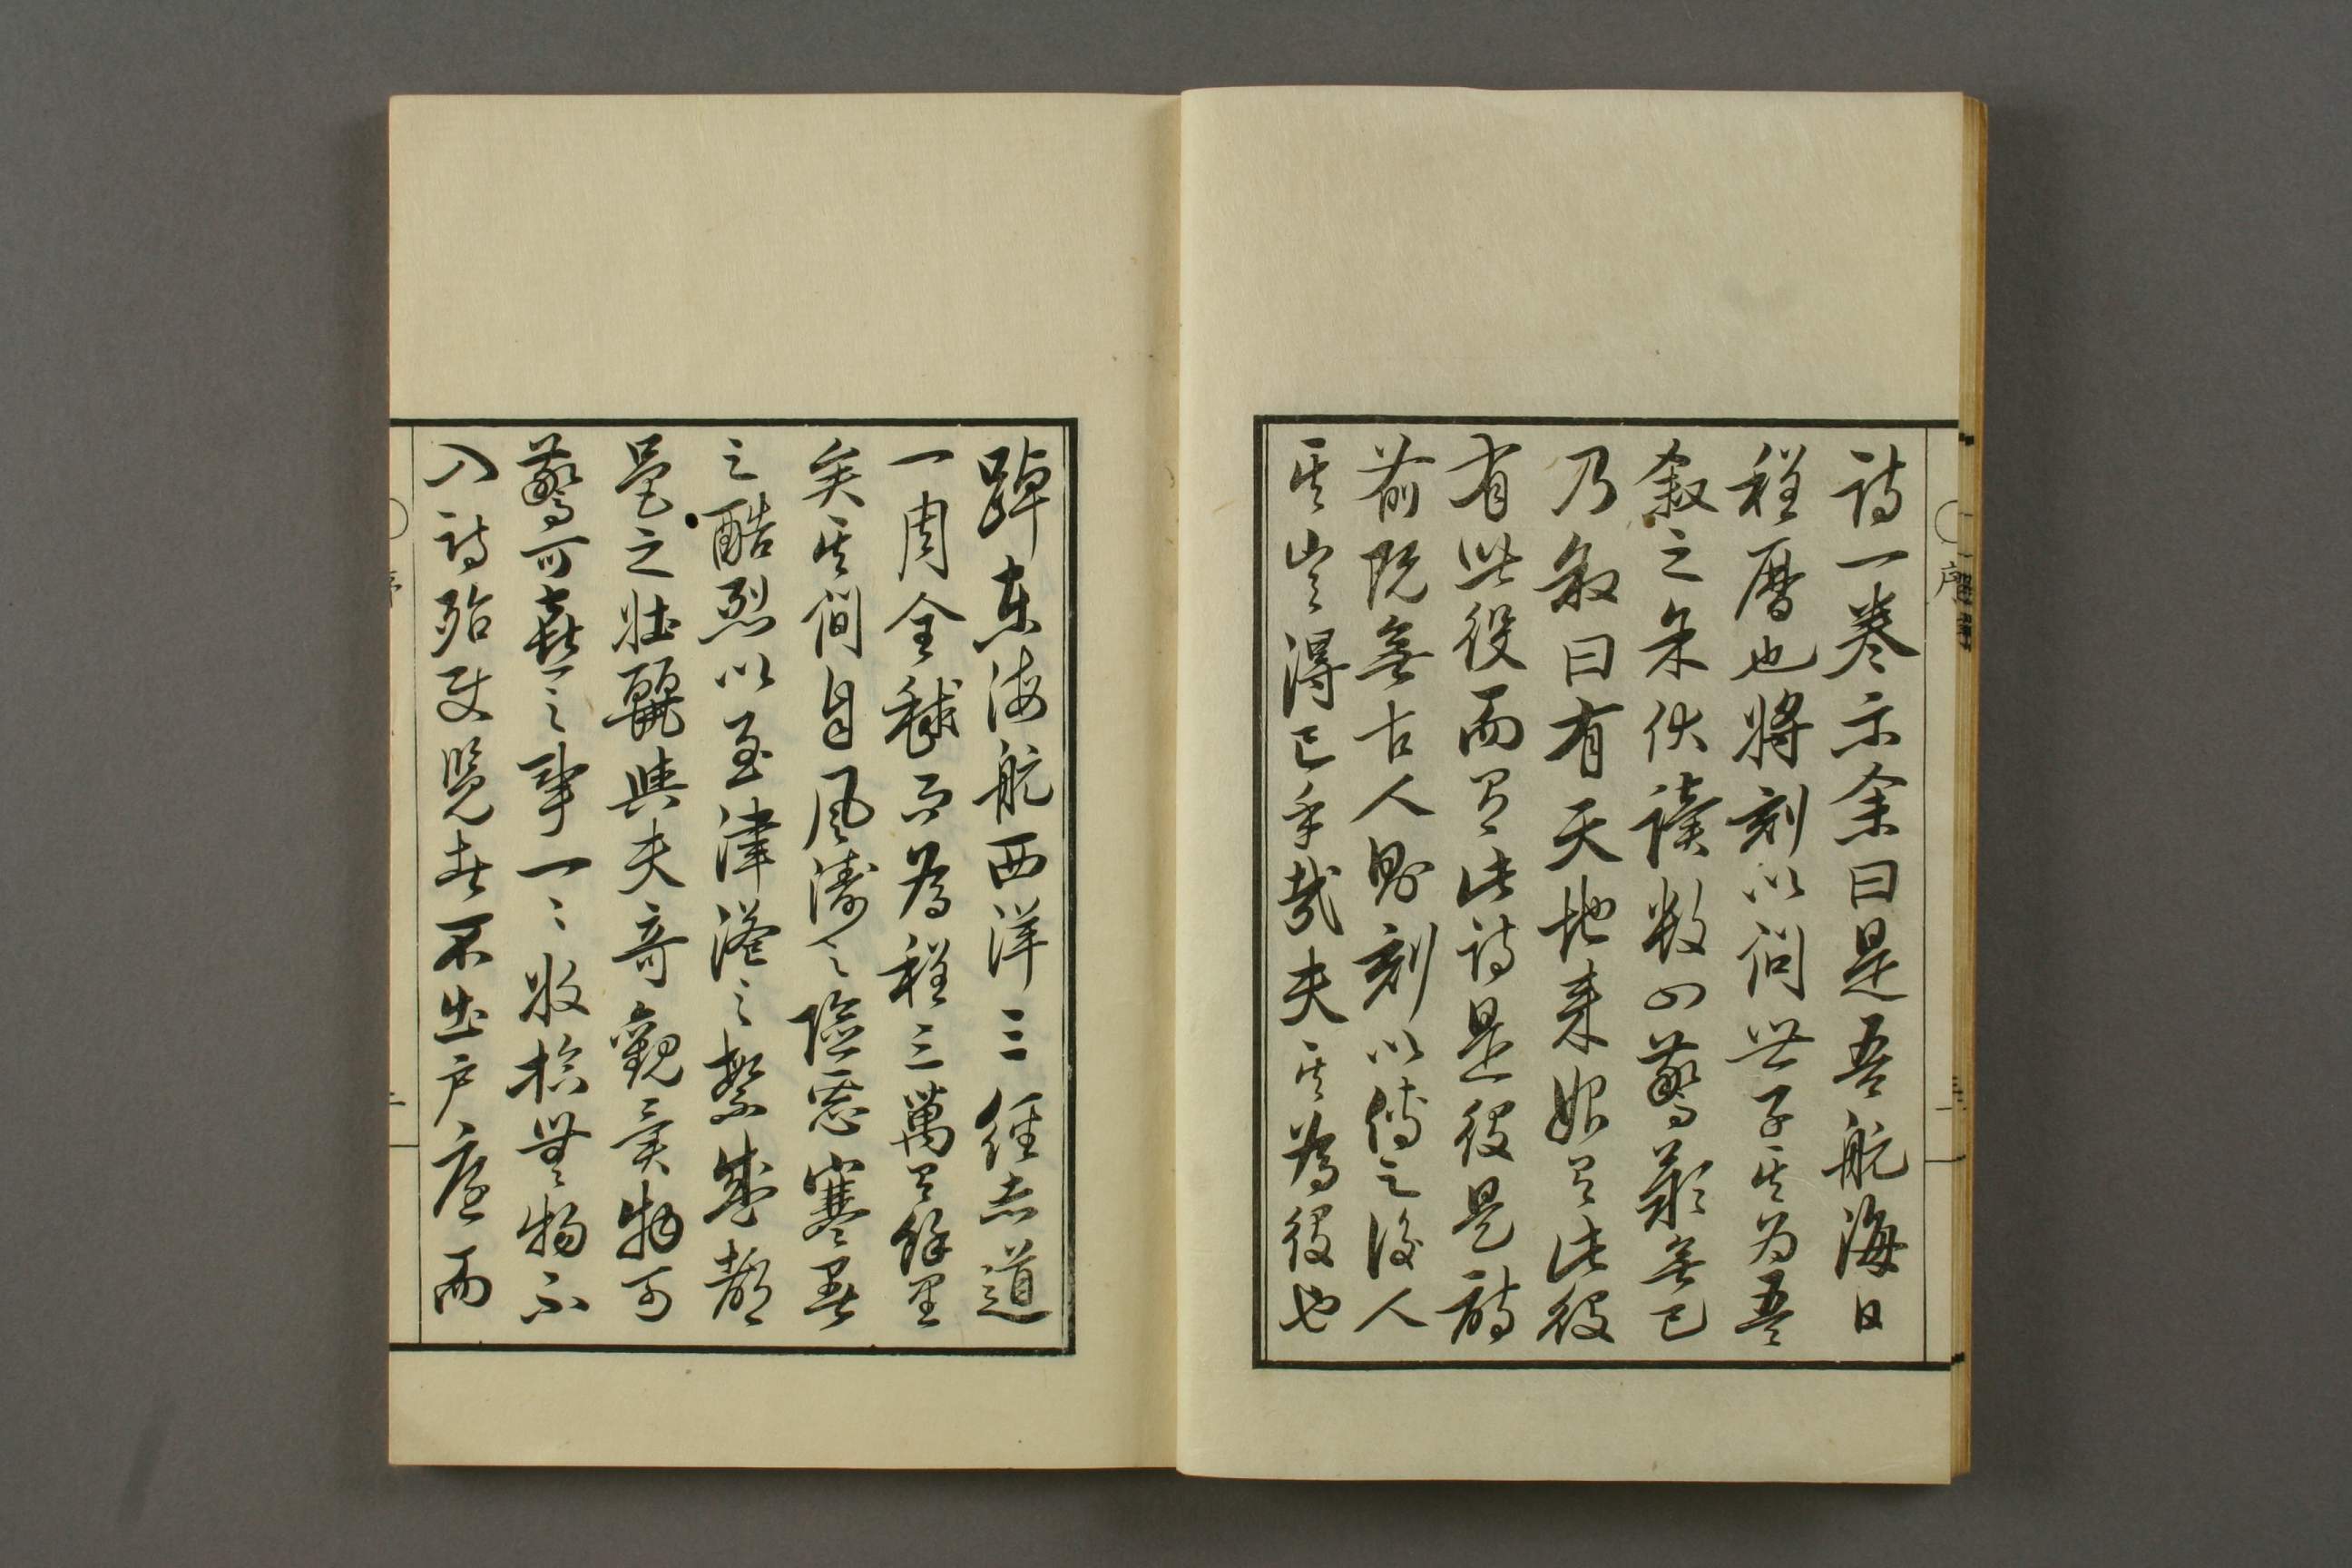 詩一巻示余曰是吾航海日
程暦也将刻以問世子其為吾
叙之余伏読数四驚歎無已
乃叙曰有天地来始有此役
有此役而有此詩是役是詩
前既無古人則刻以傳之後人
其豈得已乎哉夫其為役也
踔東海航西洋三経赤道
一周全毬而為程三萬有餘里
矣其間自風濤之險惡寒暑
之酷烈以至津港之繁盛都
邑之壮麗與夫奇觀異物可
驚可喜之事一〻收拾無物不
入詩殆使覧者不出戸庭而
序